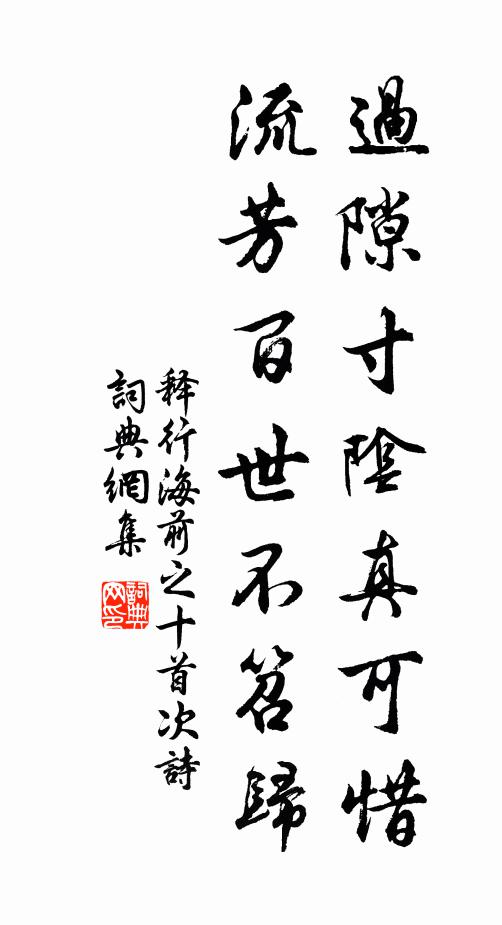 過隙寸陰真可惜
流芳百世不笤歸
释行海前之十首次詩
詞典網集
詞典网印